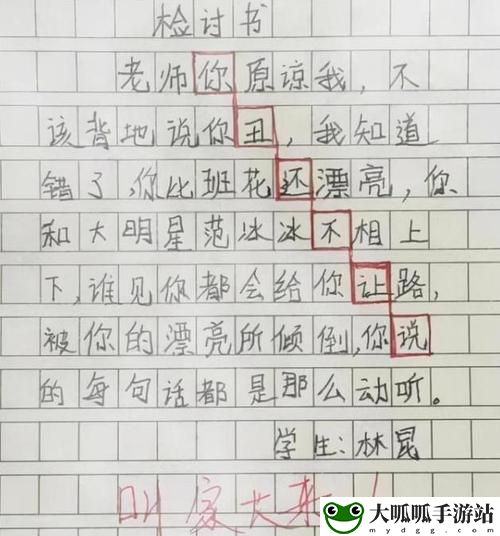 检讨书
老师你原谅我，不
该背地说你丑，我知道
错了，你比班花还漂亮，你
和大明星范冰冰不相上
下，谁见你都会给你让路，
被你的漂亮所倾倒，你说
的每句话都是那么动听。
学生：林昆
叫家大来！
大呱呱手游站
mydgg.com